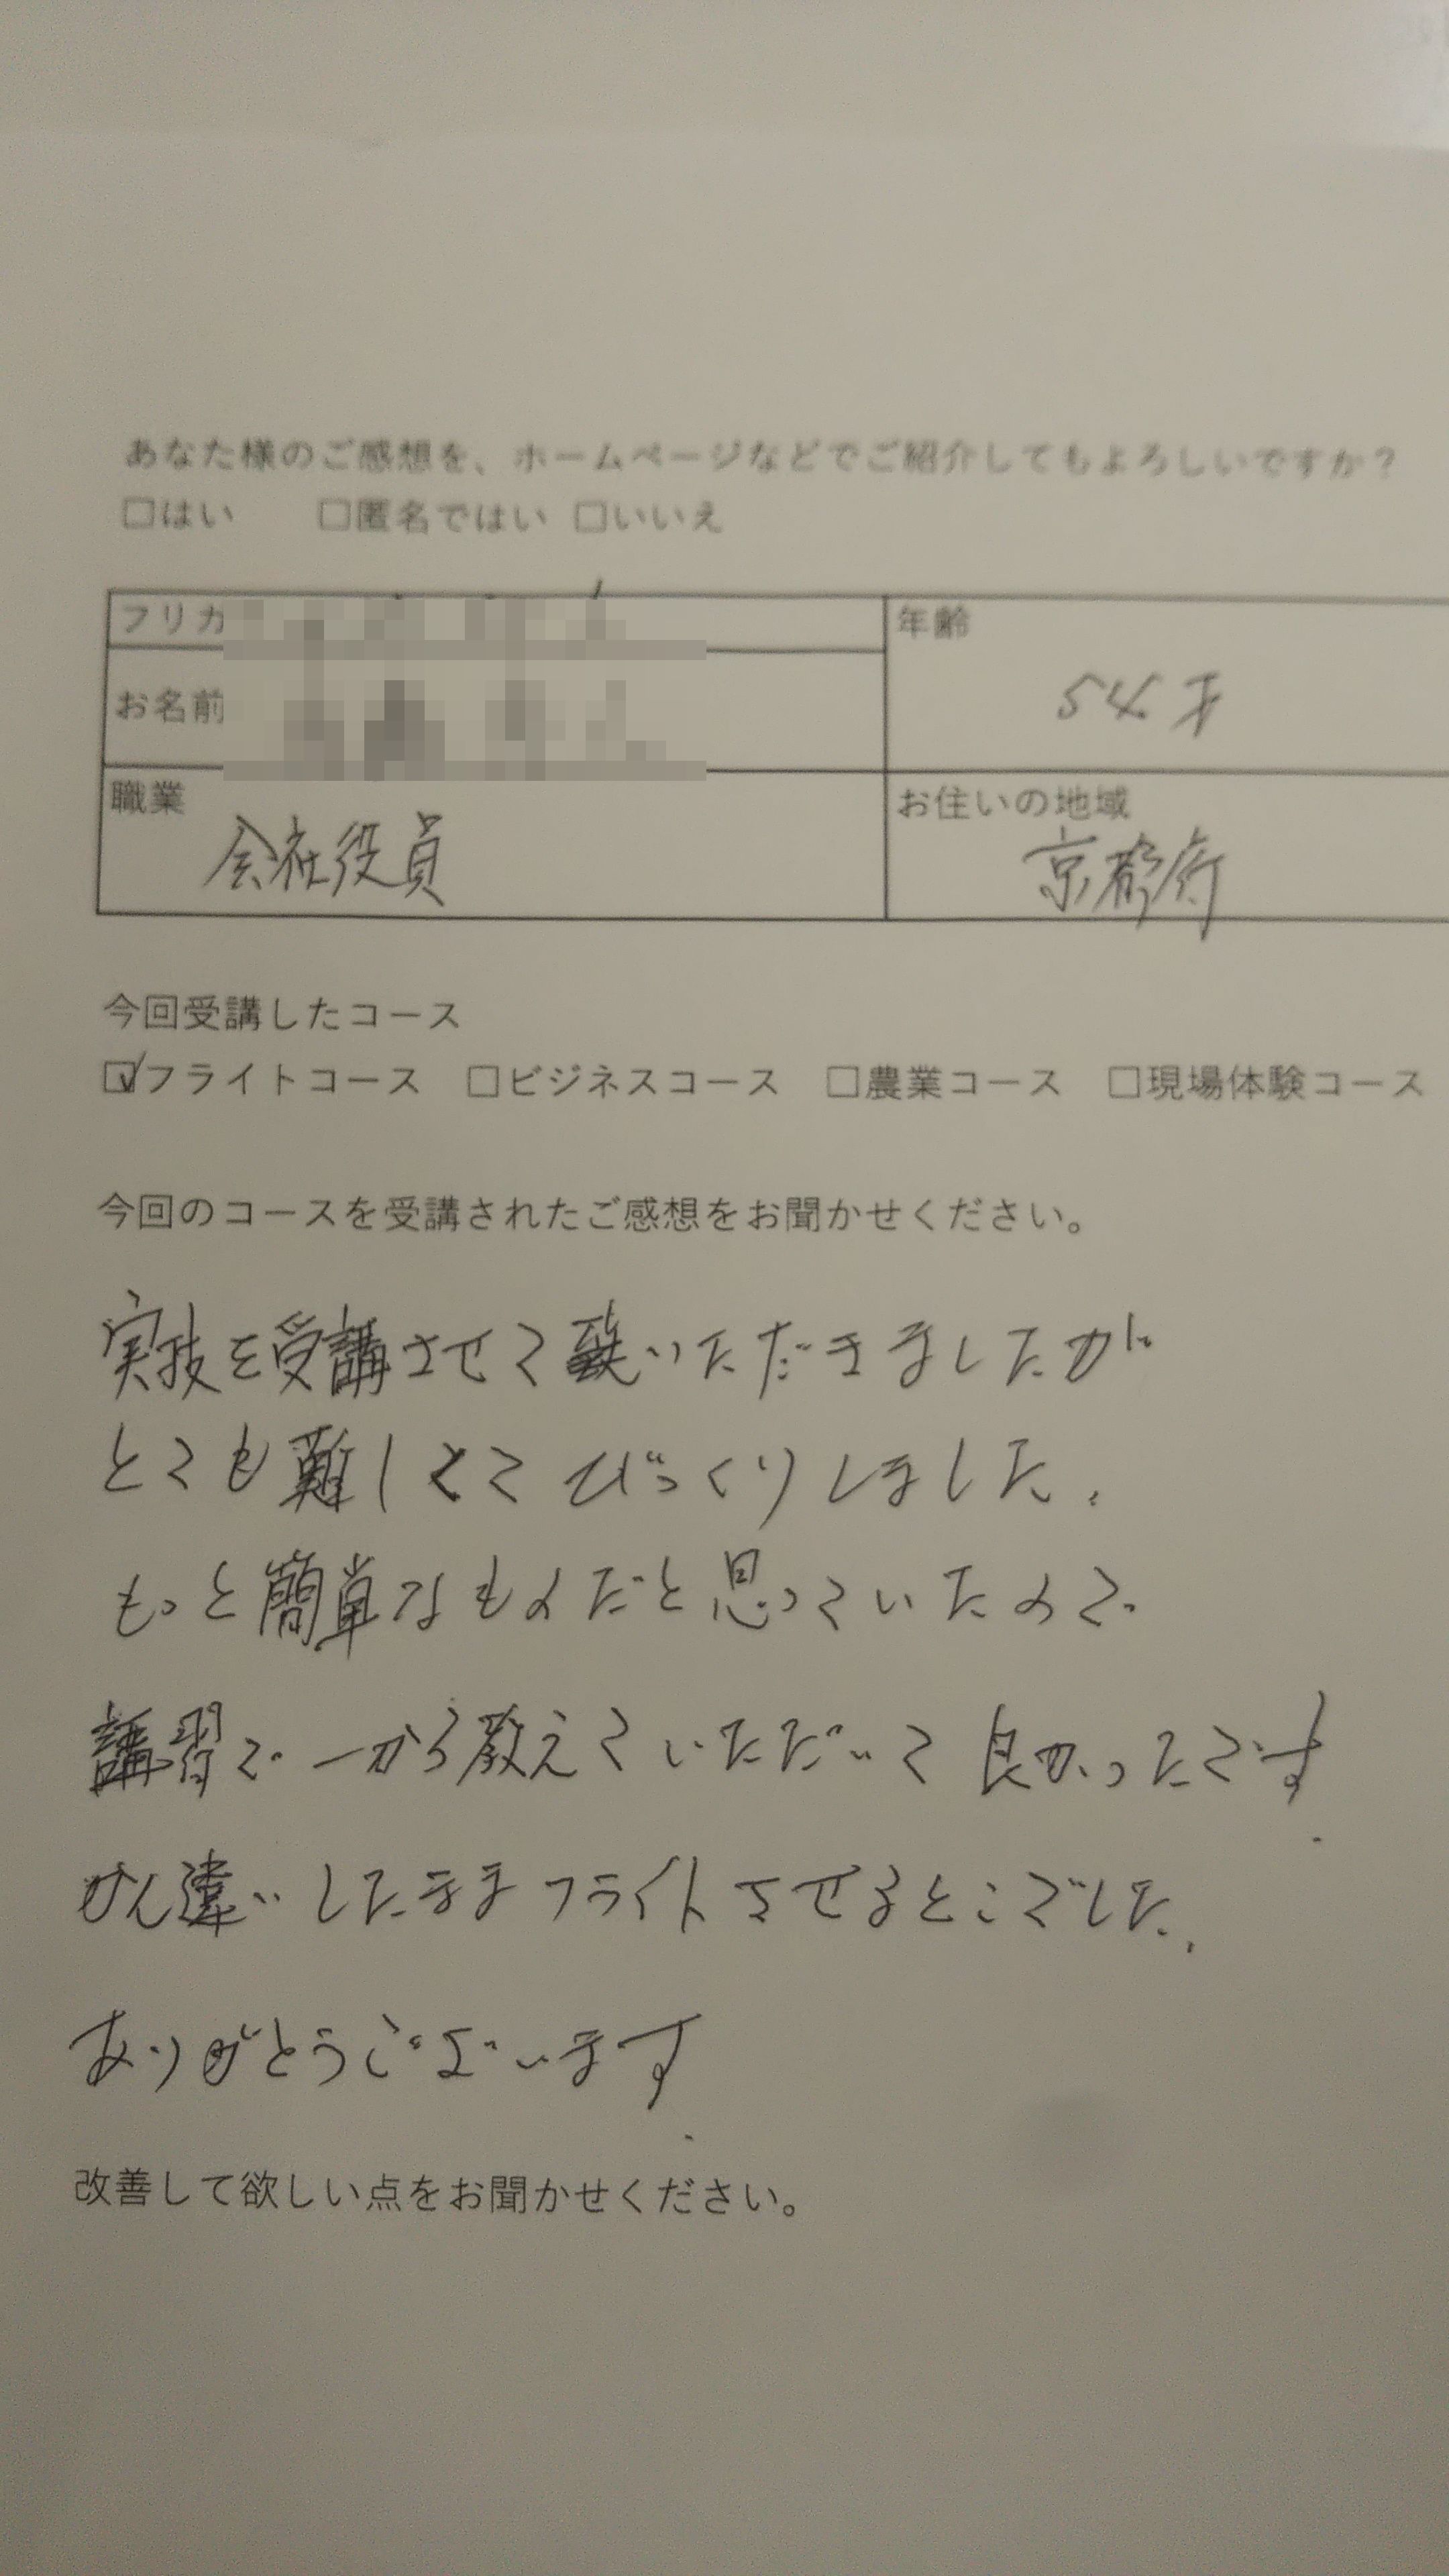 あなた様のご感想を、ホームページなどでご紹介してもよろしいですか？
□はい □匿名ではい □いいえ
フリガ
年齢
54才
お名前
職業
会社役員
お住いの地域
京都府
今回受講したコース
☑フライトコース □ビジネスコース □農業コース □現場体験コース
今回のコースを受講されたご感想をお聞かせください。
実技を受講させていただきましたが
とても難しくてびっくりしました。
もっと簡単なものだと思っていたので
講習で一から教えていただいて良かったです。
かん違いしたままフライトさせるところでした。
ありがとうございます。
改善して欲しい点をお聞かせください。